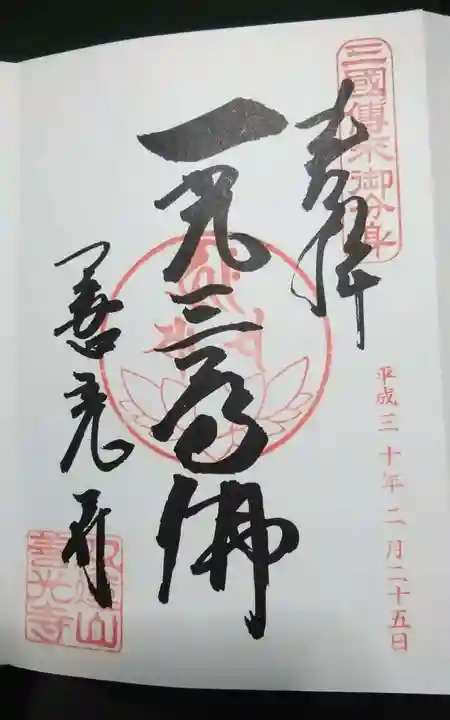 三國傳来御分身
奉拝
平成三十年二月二十五日
一光三尊佛
善光寺
善光寺